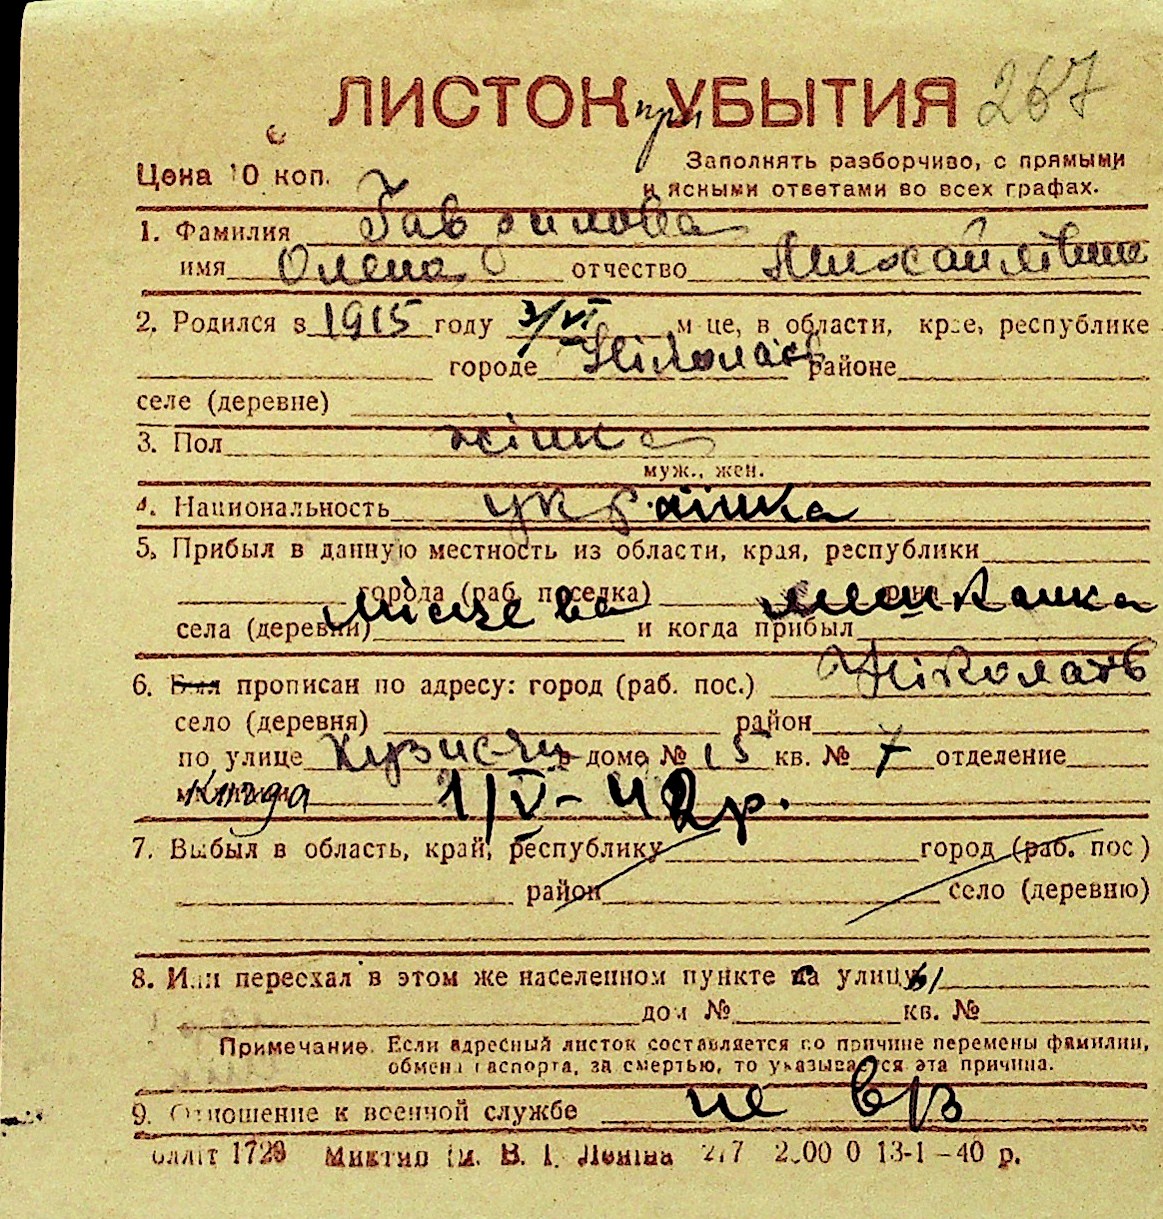 ЛИСТОК УБЫТИЯ 267
при
Цена 10 коп.
Заполнять разборчиво, с прямыми
и ясными ответами во всех графах.
1. Фамилия Гаврилова
имя Олена отчество Михайлівна
2. Родился в 1915 году 3/VI м-це, в области, крае, республике
городе Ніколаєв районе
селе (деревне)
3. Пол жінка
муж., жен.
4. Национальность українка
5. Прибыл в данную местность из области, края, республики
города (раб. поселка)
Місцева мешканка
села (деревни) и когда прибыл
6. Был прописан по адресу: город (раб. пос.) Ніколаєв
село (деревня) район
по улице в доме № 15 кв. № 7 отделение
1/V-42р.
7. Выбыл в область, край, республику город (раб. пос)
район село (деревню)
8. Или переехал в этом же населенном пункте на улицу
дом № кв. №
Примечание. Если адресный листок составляется по причине перемены фамилии,
обмена паспорта, за смертью, то указывается эта причина.
9. Отношение к военной службе не в/з
блліт 1729 Миктип ім. В. І. Леніна 13-1-40 р.